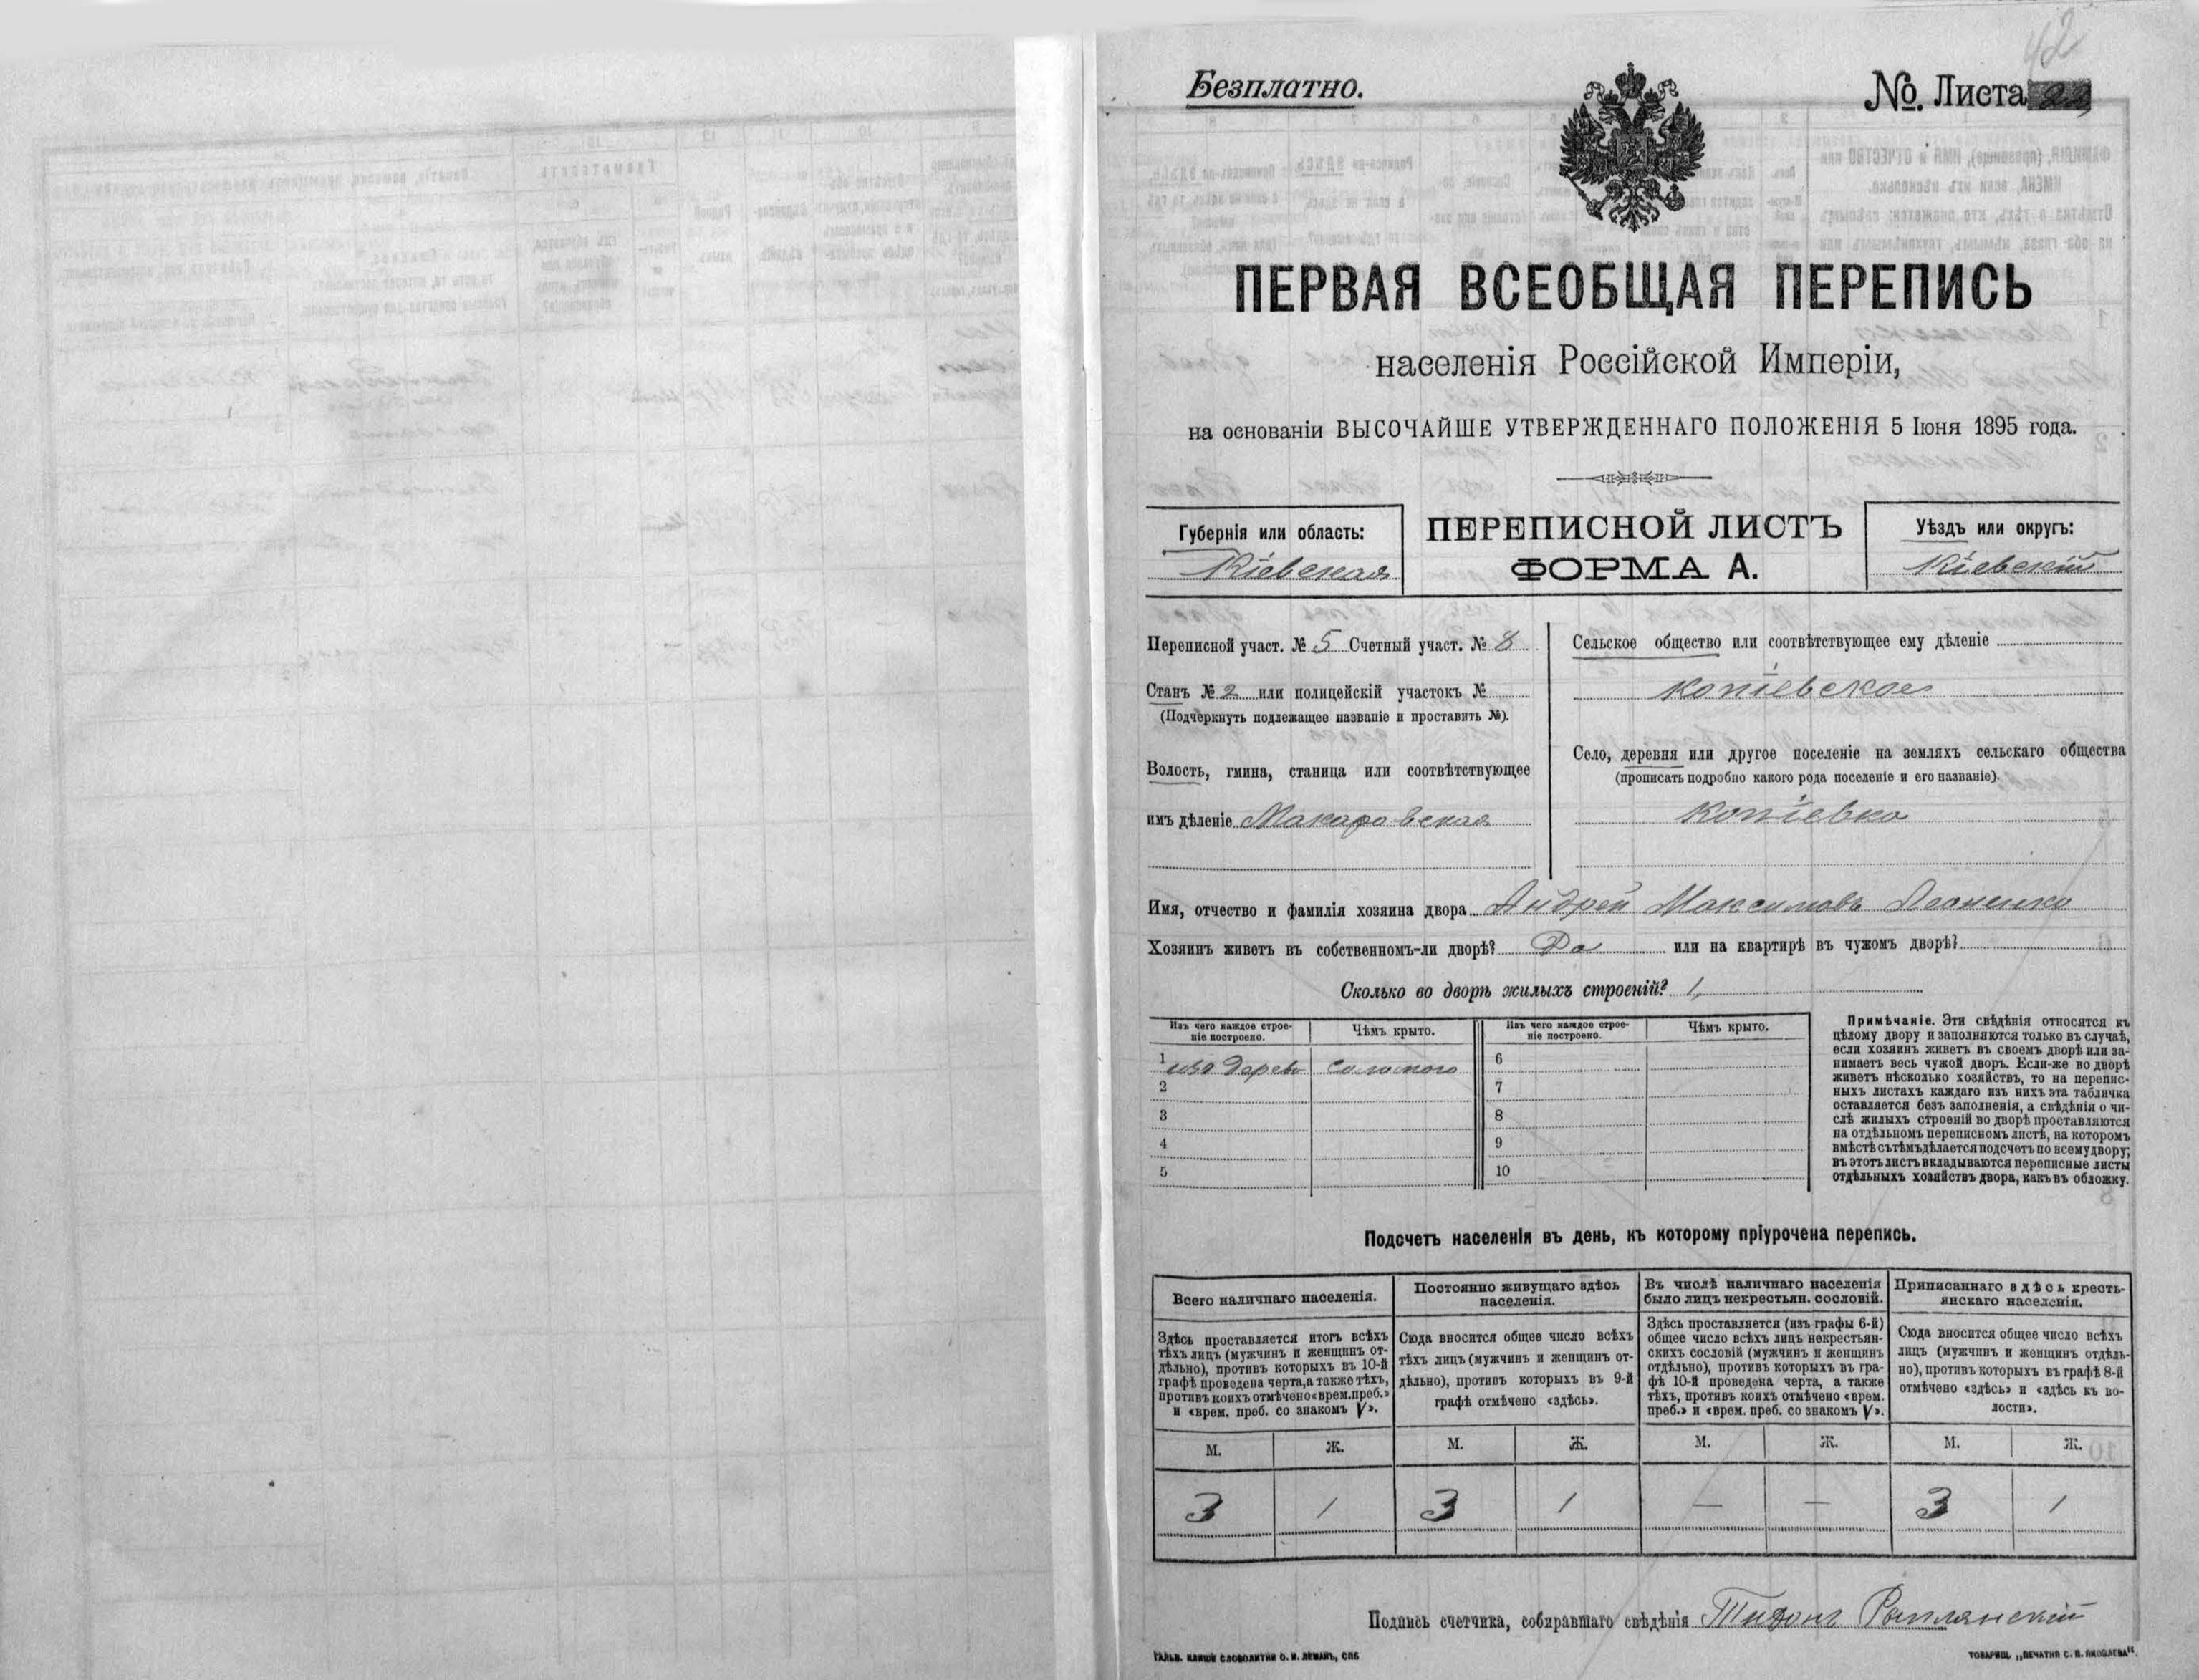 42
Безплатно.
№. Листа
ПЕРВАЯ ВСЕОБЩАЯ ПЕРЕПИСЬ
населенія Россійской Имперіи,
на основаніи ВЫСОЧАЙШЕ УТВЕРЖДЕННАГО ПОЛОЖЕНІЯ 5 Іюня 1895 года.
Губернія или область:
Кіевская
ПЕРЕПИСНОЙ ЛИСТЪ
ФОРМА А.
Уѣздъ или округъ:
Кіевскій
Переписной участ. № 5 Счетный участ. № 8
Станъ № 2 или полицейскій участокъ №
(Подчеркнуть подлежащее названіе и проставить №).
Волость, гмина, станица или соотвѣтствующее
имъ дѣленіе Макаровская
Сельское общество или соотвѣтствующее ему дѣленіе
Копіевское
Село, деревня или другое поселеніе на земляхъ сельскаго общества
(прописать подробно какого рода поселеніе и его названіе).
Копіевка
Имя, отчество и фамилія хозяина двора Андрей Максимовъ Леоненко
Хозяинъ живетъ въ собственномъ-ли дворѣ? Да или на квартирѣ въ чужомъ дворѣ?
Сколько во дворѣ жилыхъ строеній? 1
Изъ чего каждое строе-
ніе построено.
Чѣмъ крыто.
Изъ чего каждое строе-
ніе построено.
Чѣмъ крыто.
1 изъ дерева соломою 6
2 7
3 8
4 9
5 10
Примѣчаніе. Эти свѣдѣнія относятся къ
цѣлому двору и заполняются только въ случаѣ,
если хозяинъ живетъ въ своемъ дворѣ или за-
нимаетъ весь чужой дворъ. Если-же во дворѣ
живетъ нѣсколько хозяйствъ, то на перепис-
ныхъ листахъ каждаго изъ нихъ эта табличка
оставляется безъ заполненія, а свѣдѣнія о чи-
слѣ жилыхъ строеній во дворѣ проставляются
на отдѣльномъ переписномъ листѣ, на которомъ
вмѣстѣ съ тѣмъ дѣлается подсчетъ по всему двору;
въ этотъ листъ вкладываются переписные листы
отдѣльныхъ хозяйствъ двора, какъ въ обложку.
Подсчетъ населенія въ день, къ которому пріурочена перепись.
Всего наличнаго населенія.
Постоянно живущаго здѣсь
населенія.
Въ числѣ наличнаго населенія
было лицъ некрестьян. сословій.
Приписаннаго здѣсь кресть-
янскаго населенія.
Здѣсь проставляется итогъ всѣхъ
тѣхъ лицъ (мужчинъ и женщинъ от-
дѣльно), противъ которыхъ въ 10-й
графѣ проведена черта, а также тѣхъ,
противъ коихъ отмѣчено «врем. преб.»
и «врем. преб. со знакомъ V».
Сюда вносится общее число всѣхъ
тѣхъ лицъ (мужчинъ и женщинъ от-
дѣльно), противъ которыхъ въ 9-й
графѣ отмѣчено «здѣсь».
Здѣсь проставляется (изъ графы 6-й)
общее число всѣхъ лицъ некрестьян-
скихъ сословій (мужчинъ и женщинъ
отдѣльно), противъ которыхъ въ гра-
фѣ 10-й проведена черта, а также
тѣхъ, противъ коихъ отмѣчено «врем.
преб.» и «врем. преб. со знакомъ V».
Сюда вносится общее число всѣхъ
лицъ (мужчинъ и женщинъ отдѣль-
но), противъ которыхъ въ графѣ 8-й
отмѣчено «здѣсь» и «здѣсь къ во-
лости».
М. Ж. М. Ж. М. Ж. М. Ж.
3 1 3 1 — — 3 1
Подпись счетчика, собиравшаго свѣдѣнія
ГАЛЬВ. КЛИШЕ СЛОВОЛИТНИ О. И. ЛЕМАНЪ, СПБ
ТОВАРИЩ. „ПЕЧАТНЯ С. П. ЯКОВЛЕВА".